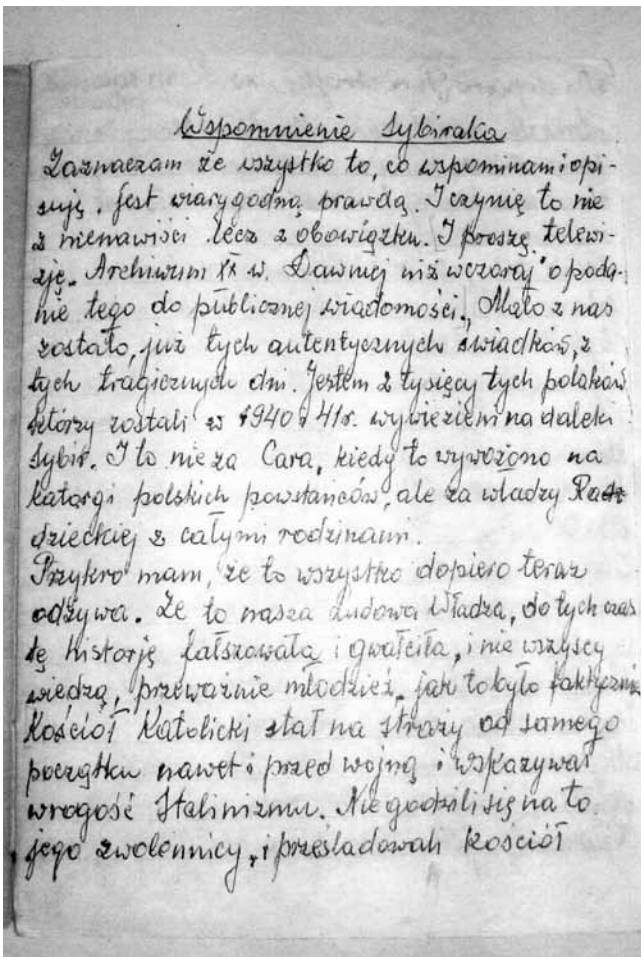 Wspomnienie Sybiraka
Zaznaczam że wszystko to, co wspominam i opi-
suję. Jest wiarygodną prawdą. I czynię to nie
z nienawiści lecz z obowiązku. I proszę telewi-
zję„ Archiwum XX w. Dawniej niż wczoraj" o poda-
nie tego do publicznej wiadomości. Mało z nas
zostało, już tych autentycznych świadków, z
tych tragicznych dni. Jestem z tysięcy tych polaków
którzy zostali w 1940 i 41r. wywiezieni na daleki
Sybir. I to nie za Cara, kiedy to wywożono na
katorgi polskich powstańców, ale za władzy Ra
dzieckiej z całymi rodzinami.
Przykro mam, że to wszystko dopiero teraz
odżywa. Że to nasza Ludowa Władza, do tych czas
tę historję fałszowała i gwałciła, i nie wszyscy
wiedzą, przeważnie młodzież„ jak to było faktycznie
Kościół Katolicki stał na straży od samego
początku nawet i przed wojną i wskazywał
wrogość Stalinizmu. Nie godzili się na to
jego zwolennicy, i prześladowali kościół